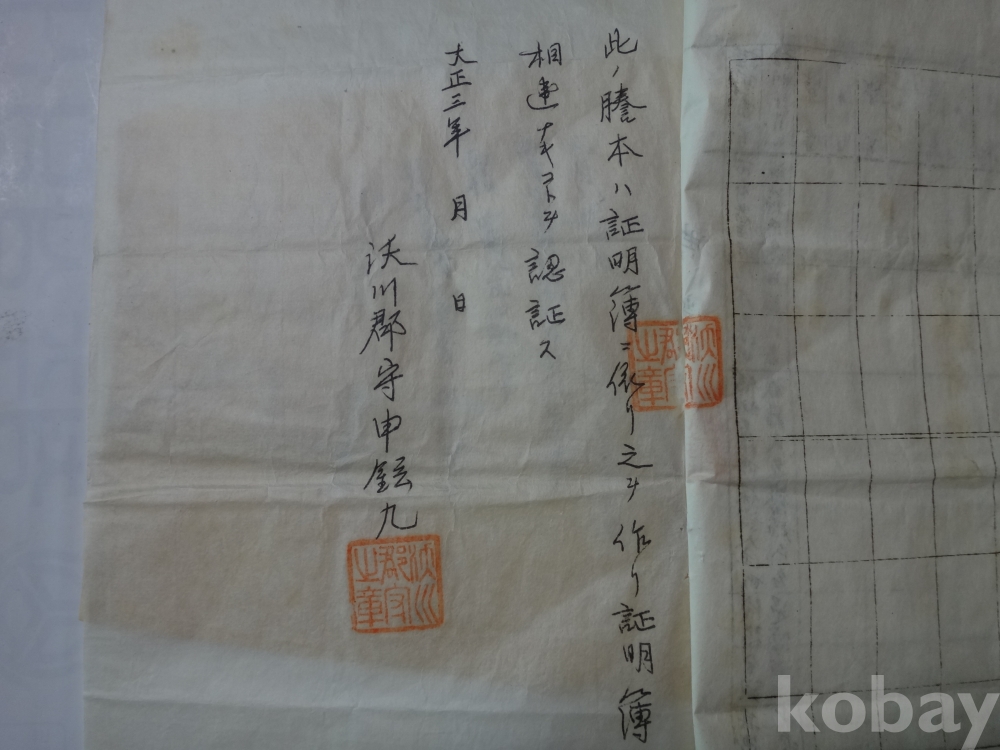 此ノ謄本ハ証明簿ニ依リ之ヲ作リ証明簿
相違ナキコトヲ認証ス
大正三年 月 日
沃川郡守申鉉九
沃川郡守之章
沃川郡守之章
kobay